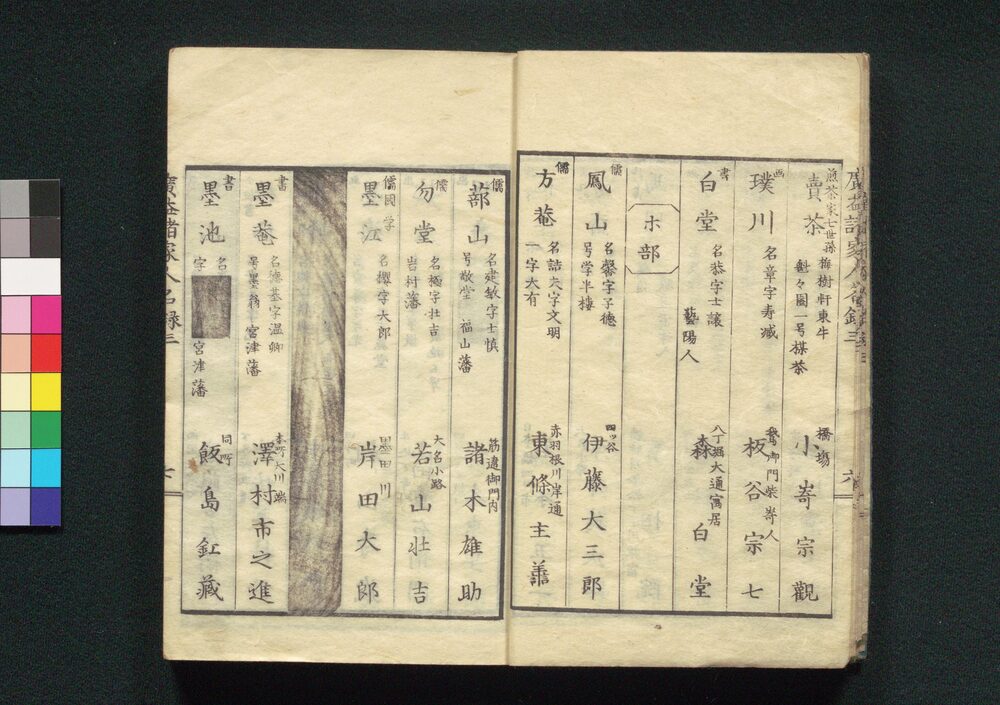 煎茶家七世孫
賣茶
梅樹軒東牛
魁々園一号楳茶
橋場
小嵜宗觀
画
璞川
名章字寿減
鷲御門柴嵜人
板谷宗七
書
白堂
名恭字士讓
藝陽人
八丁堀大通寓居
森白堂
ホ部
儒
鳳山
名馨字子德
号学半樓
四ッ谷
伊藤大三郎
儒
方菴
名詰夫字文明
一字大有
赤羽根川岸通
東條主善
儒
蔀山
名建敏字士慎
号敬堂 福山藩
筋違御門内
諸木雄助
儒
勿堂
名極字壮吉
岩村藩
大名小路
若山壮吉
儒国学
墨江
名櫻字大郎
墨田川
岸田大郎
書
墨菴
名德基字温卿
号墨翁 宮津藩
本町大川端
澤村市之進
書
墨池
名
字
宮津藩
同町
飯島釭藏
廣益諸家人名録三
六